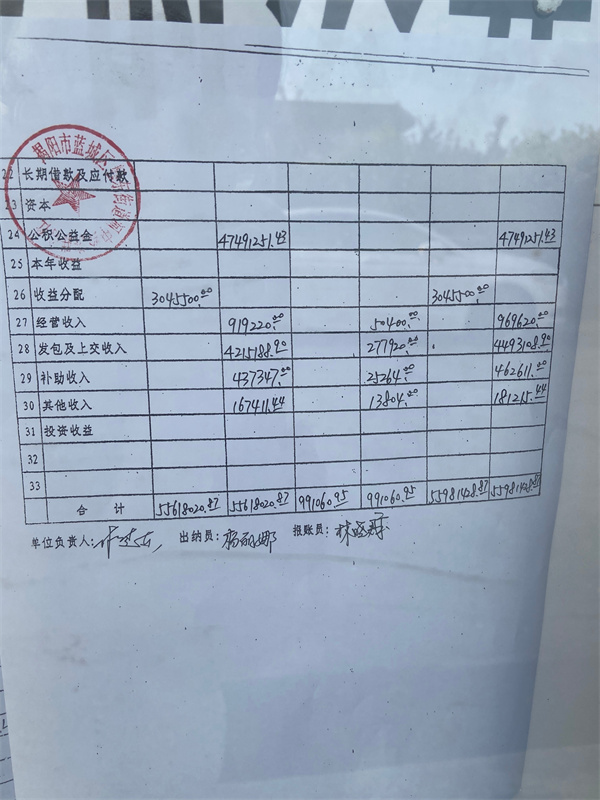 揭阳市蓝城区
22 长期借款及应付款
23 资本
24 公积公益金 47491251.43 47491251.43
25 本年收益
26 收益分配 3045500.00 3045500.00
27 经营收入 919220.00 50400.00 969620.00
28 发包及上交收入 4215188.90 277920.00 4493108.90
29 补助收入 437347.00 25264.00 462611.00
30 其他收入 167411.44 13804.00 181215.44
31 投资收益
32
33
合计 55618020.87 55618020.87 991060.95 991060.95 55981428.87 55981428.87
单位负责人: 出纳员: 杨丽娜 报账员: 林